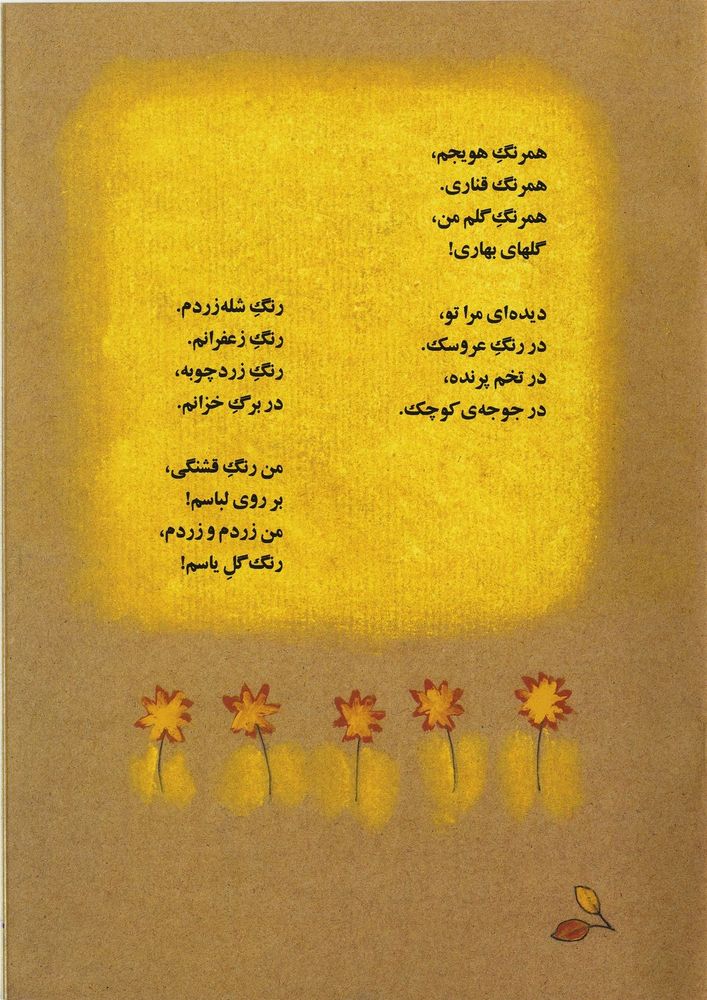 همرنگِ هویجم،
همرنگ قناری.
همرنگِ گلم من،
گلهای بهاری!
دیده‌ای مرا تو،
در رنگِ عروسک.
در تخم پرنده،
در جوجه‌ی کوچک.
رنگِ شله‌زردم.
رنگِ زعفرانم.
رنگِ زردچوبه،
در برگِ خزانم.
من رنگِ قشنگی،
بر روی لباسم!
من زردم و زردم،
رنگ گلِ یاسم!